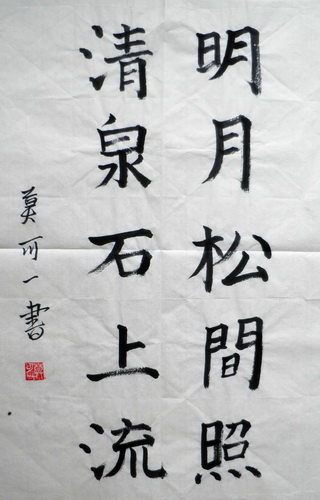 明月松間照
清泉石上流
莫可一書